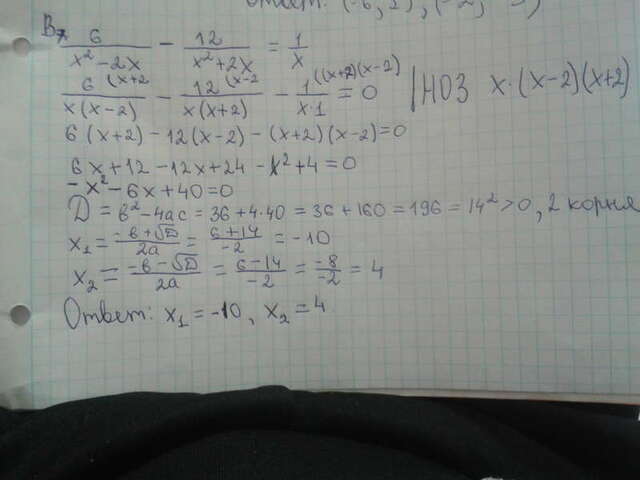 Ответ: (-6, 2), (-2,
В) 6/(x²-2x) - 12/(x²+2x) = 1/x
6(x+2/x(x-2) - 12(x-2/x(x+2) - 1((x+2)(x-2)/x·1 = 0 | НОЗ x·(x-2)(x+2)
6(x+2)-12(x-2)-(x+2)(x-2)=0
6x+12-12x+24-x²+4=0
-x²-6x+40=0
D=в²-4ac=36+4·40=36+160=196=14²>0, 2 корня
x₁=(-в+√D)/2a=(6+14)/-2=-10
x₂=(-в-√D)/2a=(6-14)/-2=-8/-2=4
Ответ: x₁=-10, x₂=4